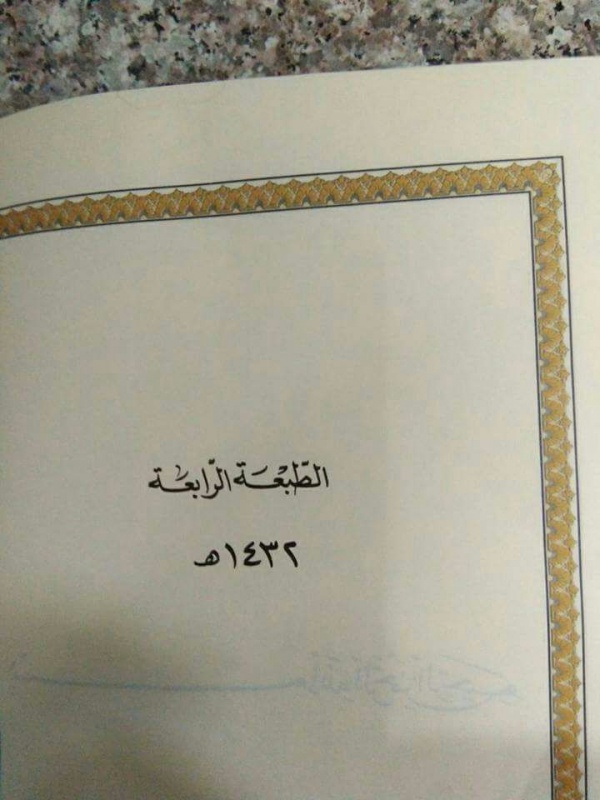 الطَّبْعَة الرَّابِعَة
١٤٣٢هـ